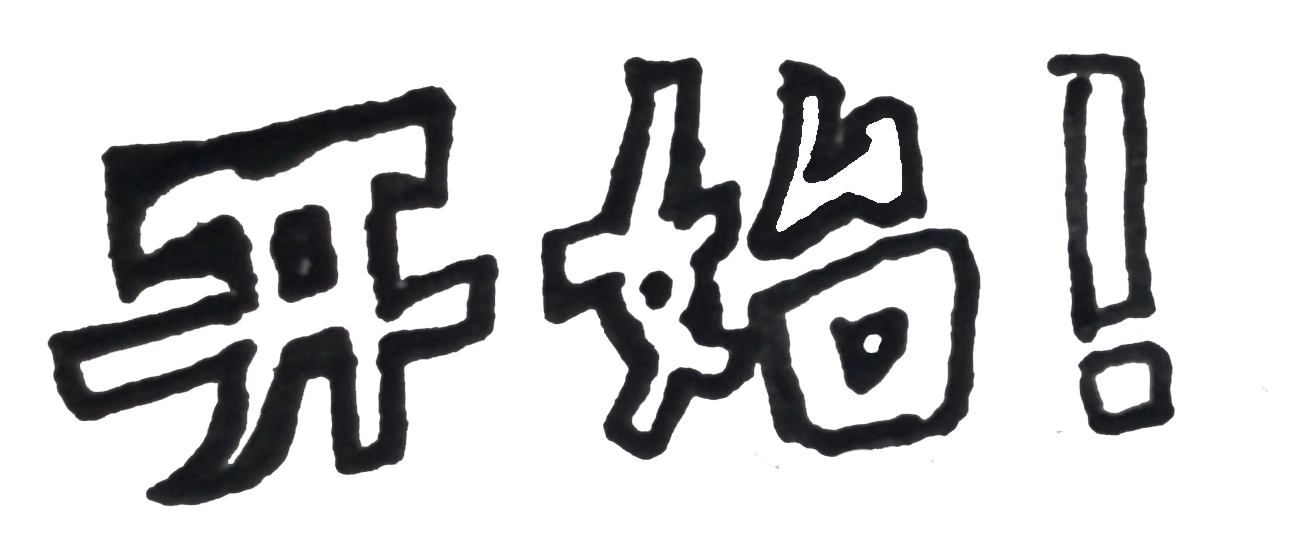 开始!